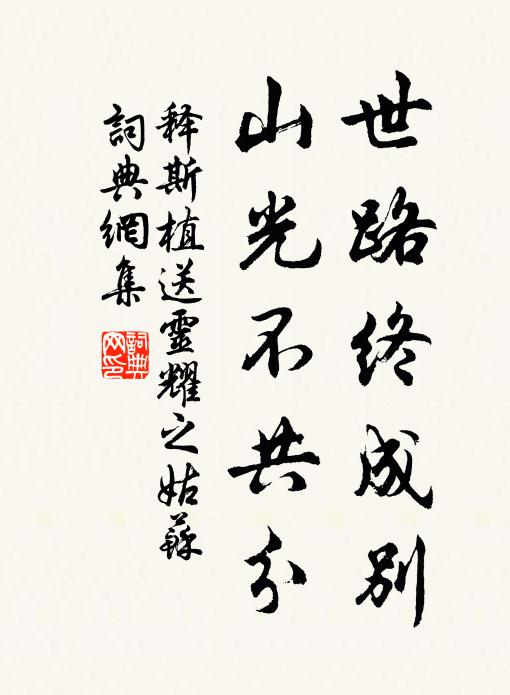 世路终成别
山光不共分
释斯植送靈耀之姑蘇
詞典網集
詞典網印